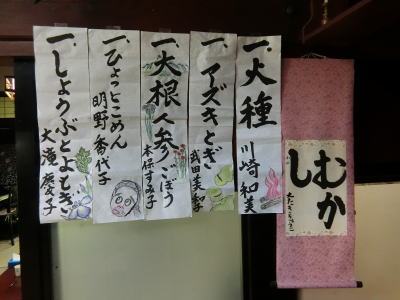 むか
し
一、火種
川崎和美
一、アズキとぎ
武田美智子
一、大根人参ごぼう
本保すみ子
一、ひょっとこめん
明野香代子
一、しょうぶとよもぎ
大滝慶子